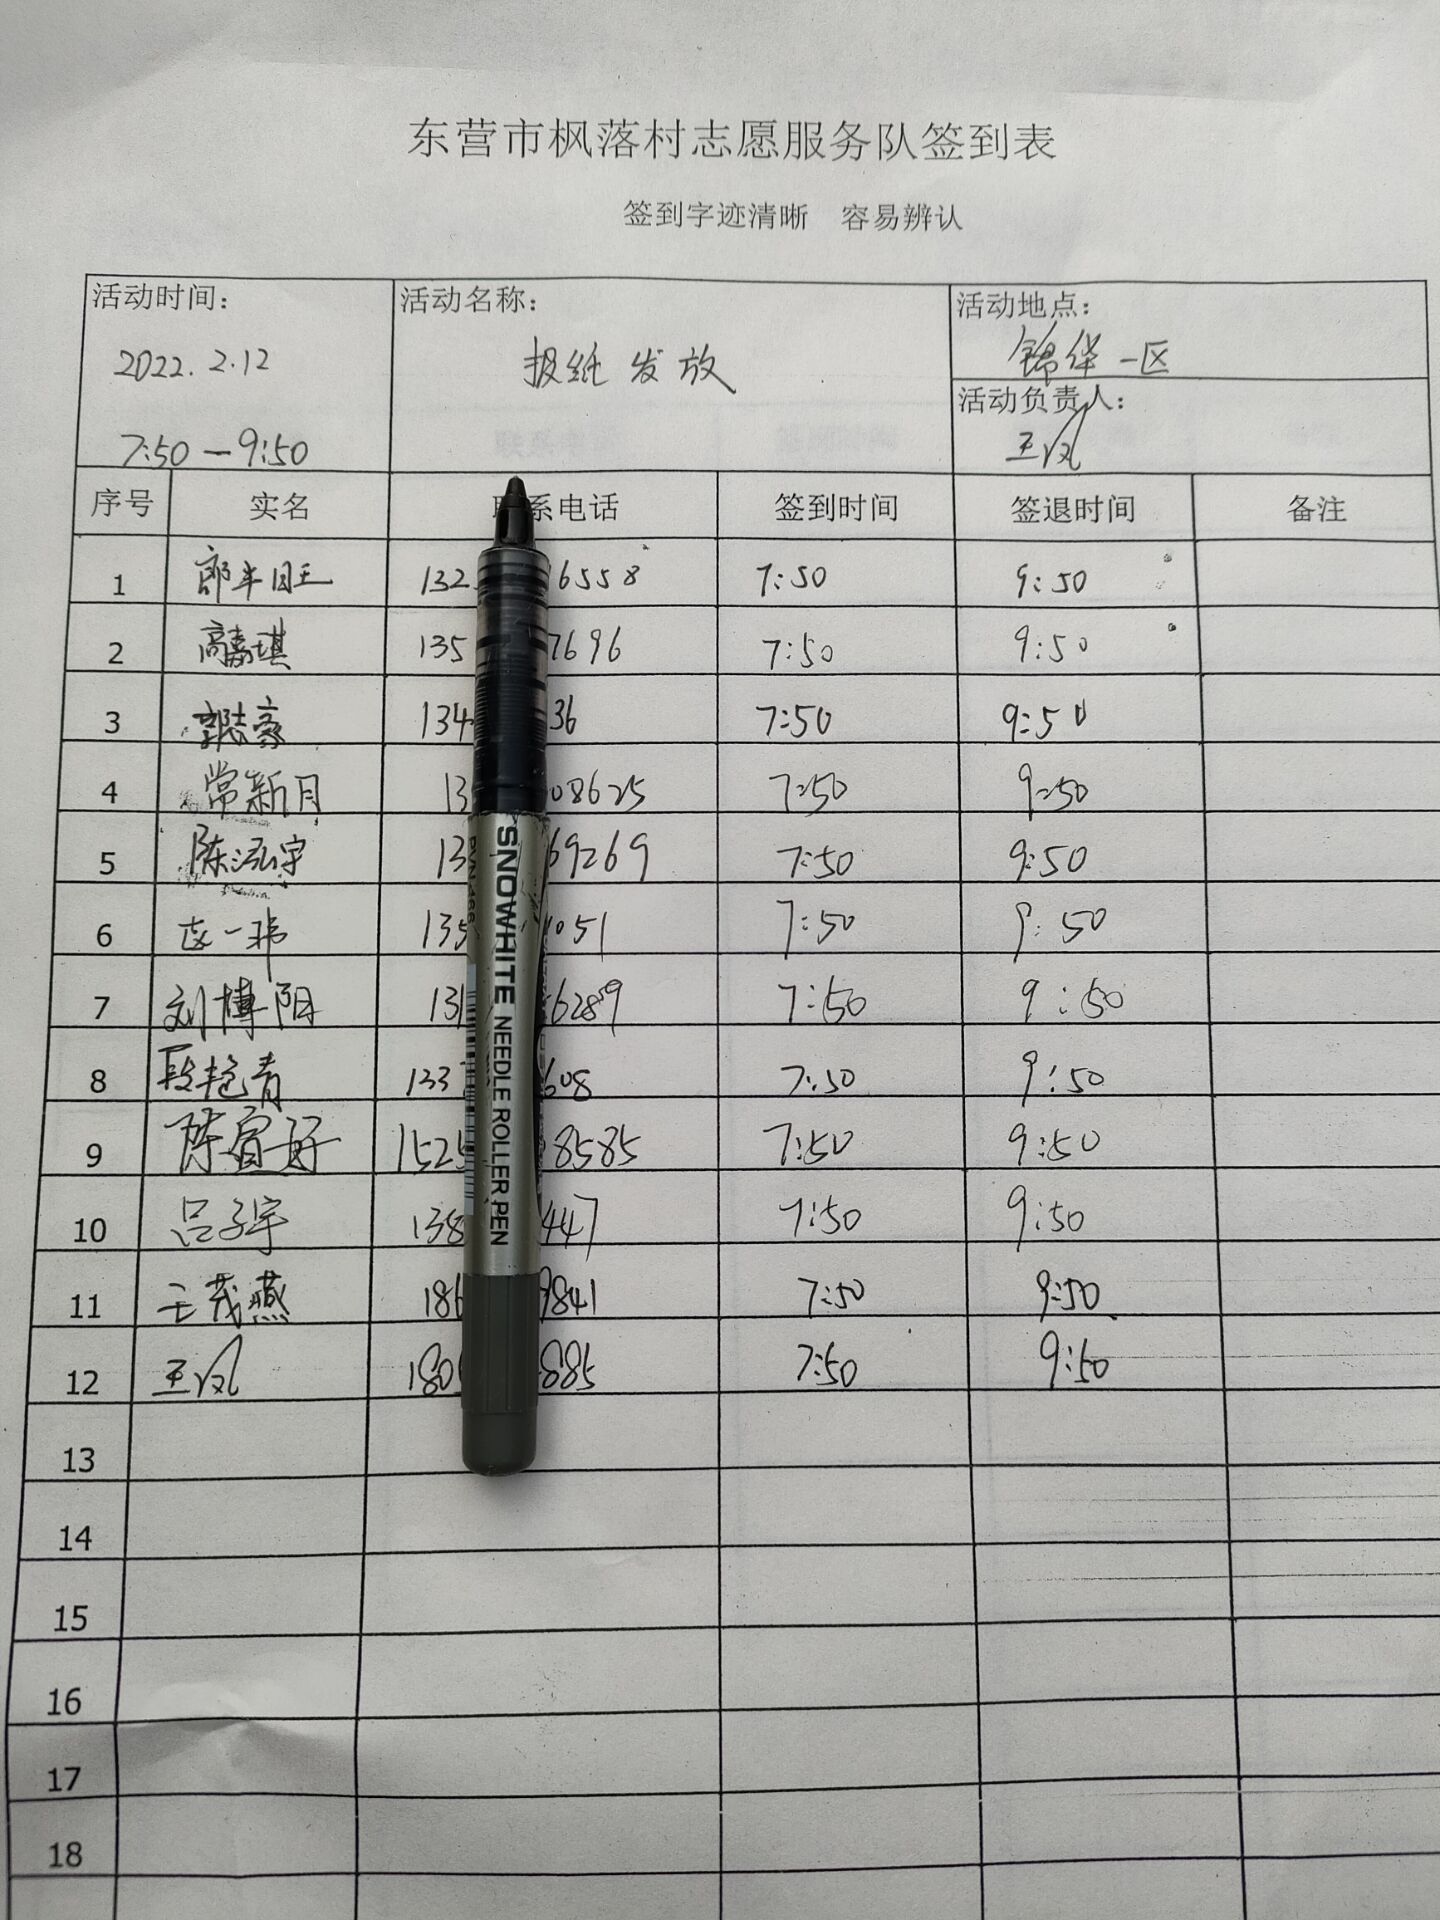 东营市枫落村志愿服务队签到表
签到字迹清晰 容易辨认
活动时间: 活动名称: 活动地点:
2022.2.12 报纸发放 锦华一区
活动负责人:
7:50—9:50 王凤
序号 实名 系电话 签到时间 签退时间 备注
1 郎丰旺 132 6558 7:50 9:50
2 高嘉琪 135 7696 7:50 9:50
3 郭志豪 134 36 7:50 9:50
4 常新月 13 08625 7:50 9:50
5 陈泓宇 13 69269 7:50 9:50
6 一玮 135 051 7:50 9:50
7 刘博阳 131 6289 7:50 9:50
8 段艳青 133 608 7:50 9:50
9 陈宣好 1525 8585 7:50 9:50
10 吕子宇 138 447 7:50 9:50
11 王茂燕 186 9841 7:50 9:50
12 王凤 180 885 7:50 9:50
13
14
15
16
17
18
SNOWHITE NEEDLE ROLLER PEN